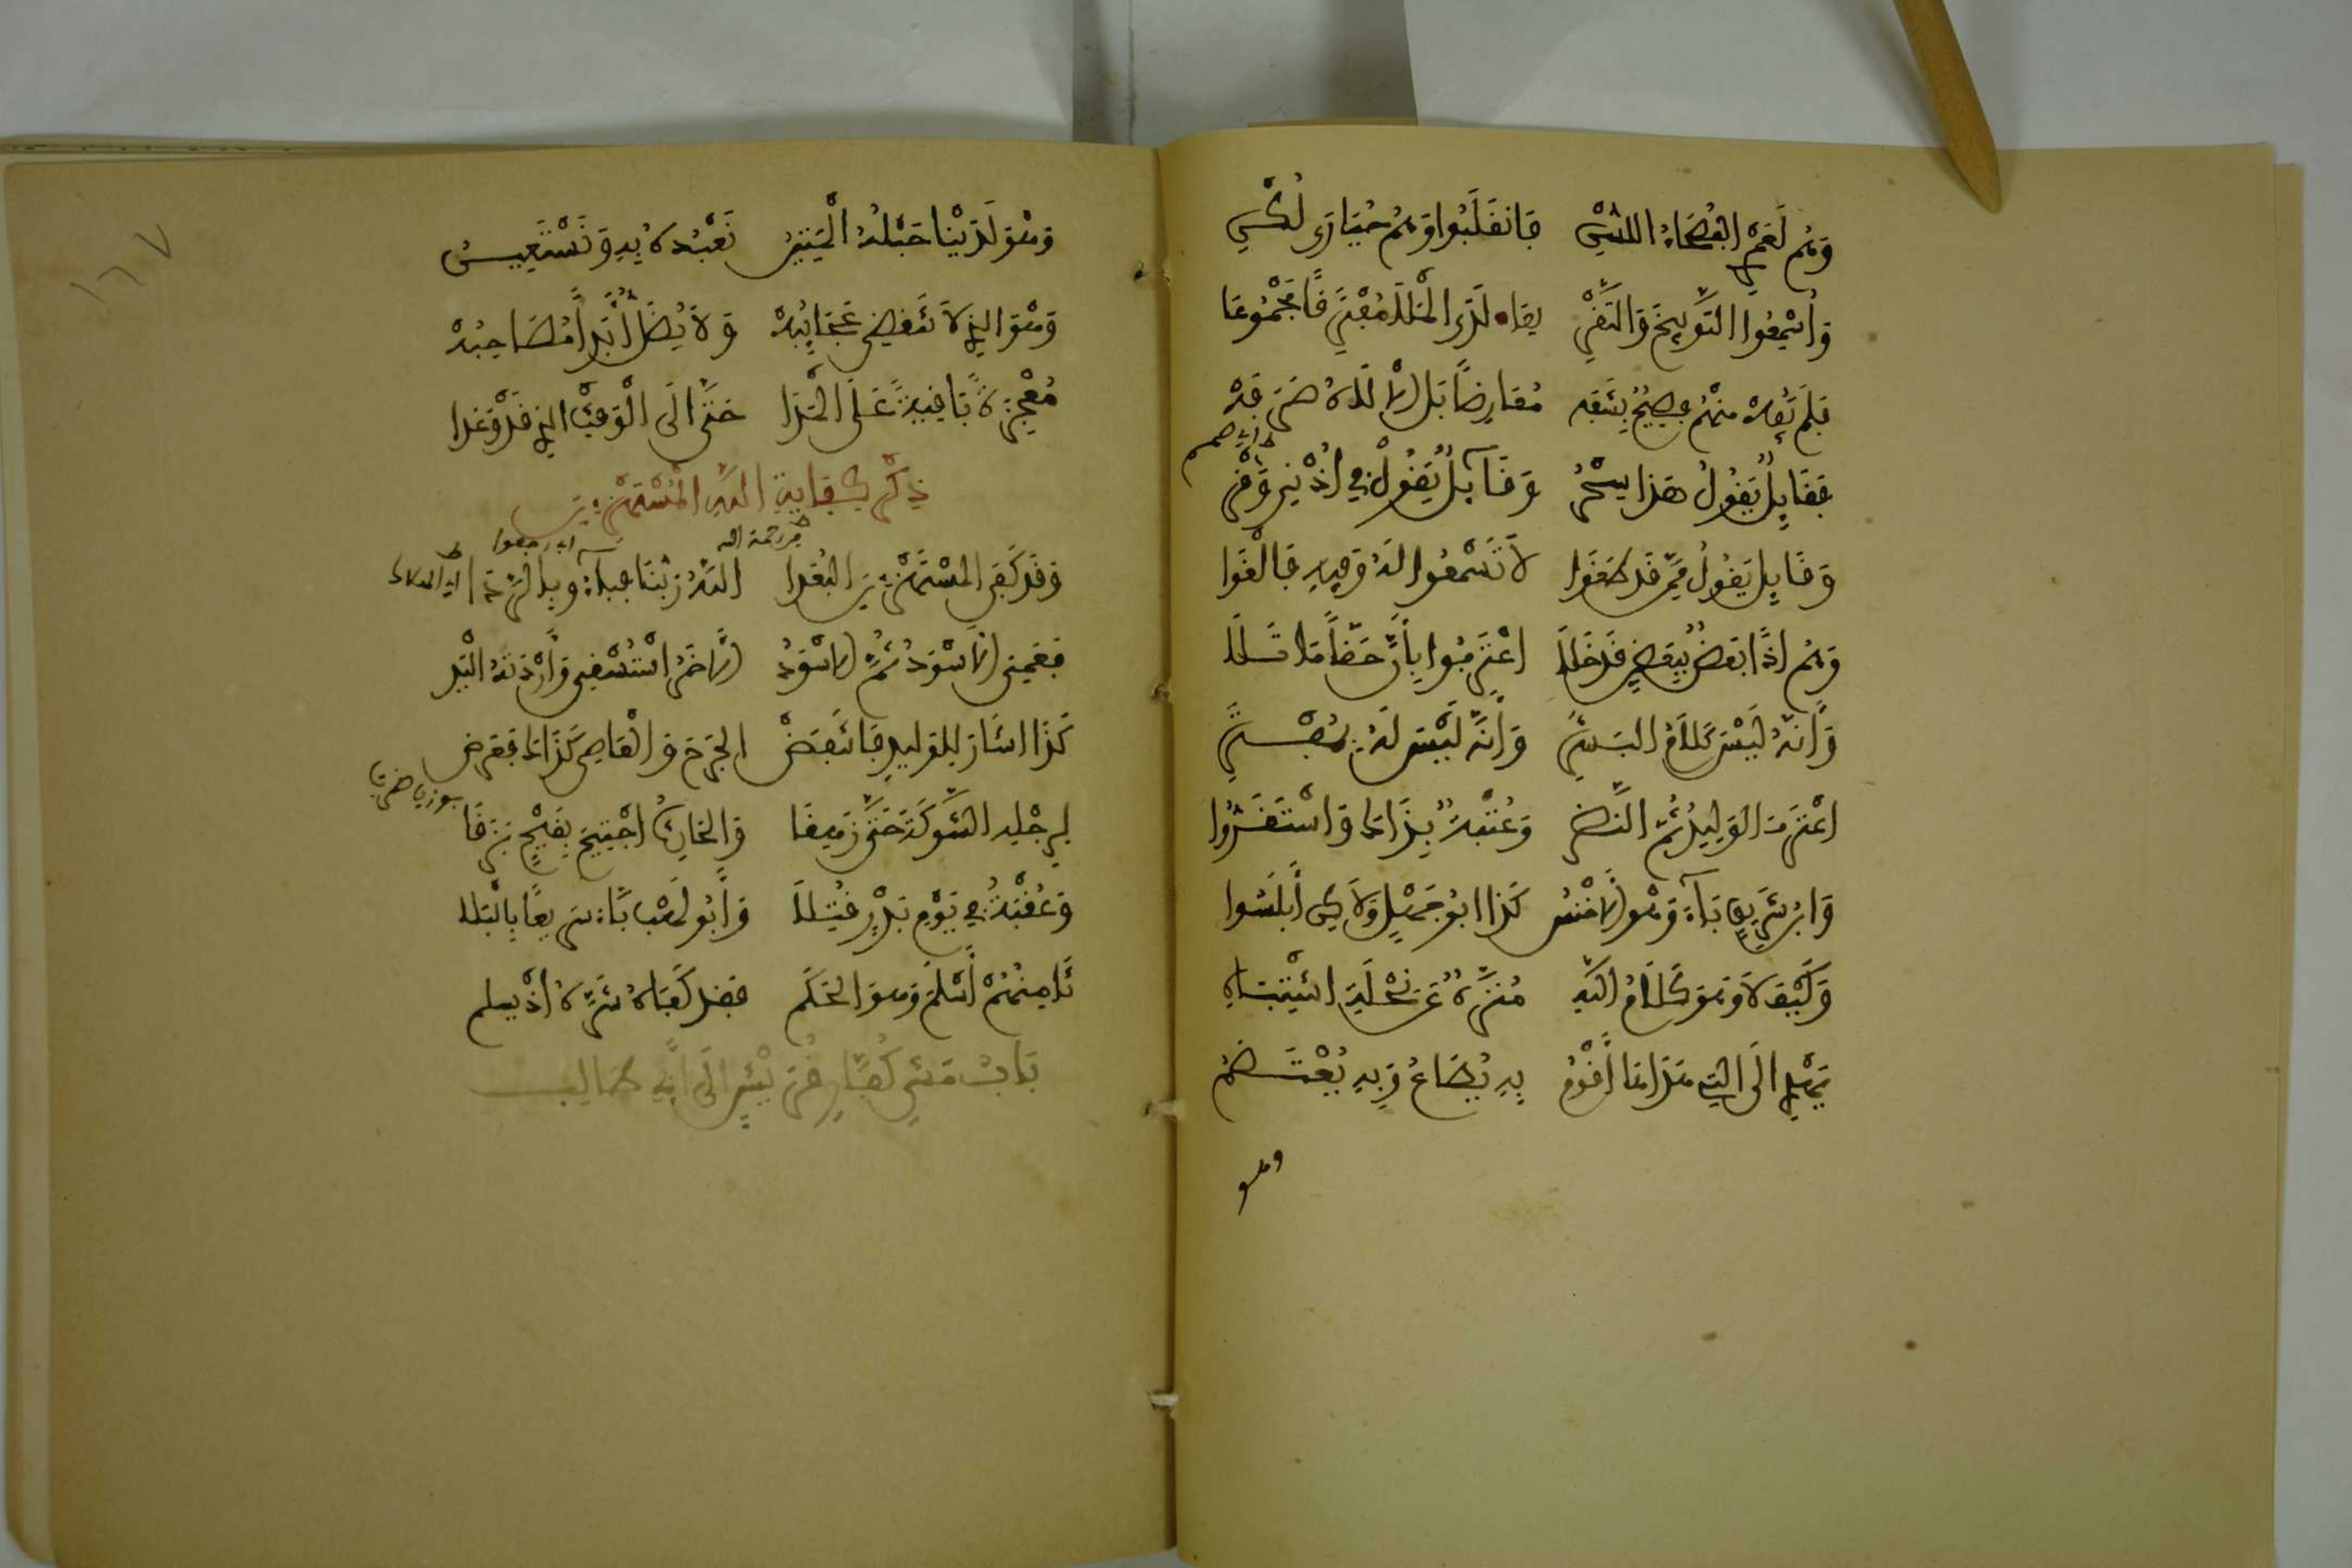 وَهُم لَعَمْرِي الفُصَحَاءُ اللُّسْنِ فَانقَلَبُوا وَهُمْ حَيَارَى لُكْنِ
وَأُسْمِعُوا التَّوْبِيخَ وَالتَّقْرِيعَا لَدَى الْمَلَا مُفْتَرِقًا مَجْمُوعَا
فَلَم يَفُهْ مِنْهُمْ فَصِيحٌ بِشَفَه مُعَارِضًا بَل الالَهُ صَرَفَهْ
فَقَايِلٌ يَقُولُ هَذَا سِحْرُ وَقَآيِلٌ يَقُولُ فِي أُذْنِي وَقْرُ
وَقَايِلٌ يَقُولُ مِمَّن قَد طَغَوْا لاَ تَسْمَعُوا لَهُ وَفِيهِ فَالْغَوْا
وَهُم اذَا بَعْضٌ بِبَعْضٍ قَدْ خَلَا اعْتَرَفُوا بِأَنَّ حَقًّا مَا تَلَا
وَأَنَّهُ لَيْسَ كَلاَمَ البَشَرِ وَأَنَّهُ لَيْسَ لَهُ بِمُفْتَرِ
اعْتَرَفَ الوَلِيدُ ثُمَّ النَّضْرُ وَعُتْبَةٌ بِذَا وَاسْتَقَرُّوا
وَابْنُ شَرِيقٍ بَآءَ وَهْوَ الاخْنَسُ كَذَا ابُو جَهْلٍ وَلَاكِن أَبْلَسُوا
وَكَيْفَ لاَ وَهْوَ كَلَامُ اللَّهِ مُنَزَّهٌ عَن نِحْلَةِ اشْتِبَاهِ
يَهْدِي الَى التِي هَذَا أَقْوَمُ بِهِ يُطَاعُ وَبِهِ يُعْتَصَمُ
وهو
١٦٧
وَهْوَ لَدَيْنَا حَبْلُهُ الْمَتِينُ نَعْبُدُهُ بِهِ وَنَسْتَعِينُ
وَهْوَ الذِي لاَ تَنقَضِي عَجَايِبُهْ وَلاَ يُضَلُّ أَبَدًا مُصَاحِبُهْ
مُعْجِزَةٌ بَاقِيَةٌ عَلَى الْمَدَا حَتَّى الَى الْوَقْتِ الذِي قَدْ وُعِدَا
ذِكْرُ كِفَايَةِ اللَّهِ الْمُسْتَهْزِءِينَ
وَقَد كَفَى المُسْتَهْزِءِينَ البُعَدَا اللَّهُ رَبُّنَا فَبَآءُوا بِالرَّدَا
فَعَمِيَ الاسْوَدُ ثُمَّ الاسْوَدُ الاخَرُ اسْتُسْقِيَ وَأَرْدَتْهُ الْيَدُ
كَذَا اشَارَ لِلوَلِيدِ فَانتَقَضْ الجَرْحُ وَالْعَاصِي كَذَا فَعَرَض
لِرِجْلِهِ الشَّوكَةُ حَتَّى زَهَقَا وَالحَارِثُ اجْتِيحَ بِقَيْحٍ بَزَقَا
وَعُقْبَةٌ فِي يَوْمِ بَدْرٍ قُتِلَا وَأَبُو لَهَبٍ بَاءَ سَرِيعًا بِالْبَلَا
ثَامِنُهُمْ أَسْلَمَ وَهْوَ الحَكَمُ فَقَد كَفَاهُ شَرَّهُ اذْ يُسْلِمُ
بَابُ مَشْيِ كُفَّارِ قُرَيْشٍ الَى أَبِي طَالِب